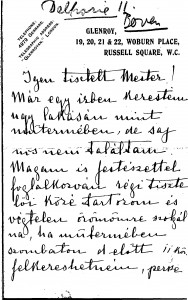 Delhorie 11
GLENROY,
19, 20, 21 & 22, WOBURN PLACE,
RUSSELL SQUARE, W.C.
Igen tisztelt Mester!
Már egy izben kerestem
úgy lakásán mint
mütermében, de saj
nos nem találtam.
Magam is festészettel
foglalkozván régi tisztelői
közé tartozom és
végtelen örömömre szolgál
na, ha mütermében
szombaton d. előtt 11 kor
felkereshetném, persze